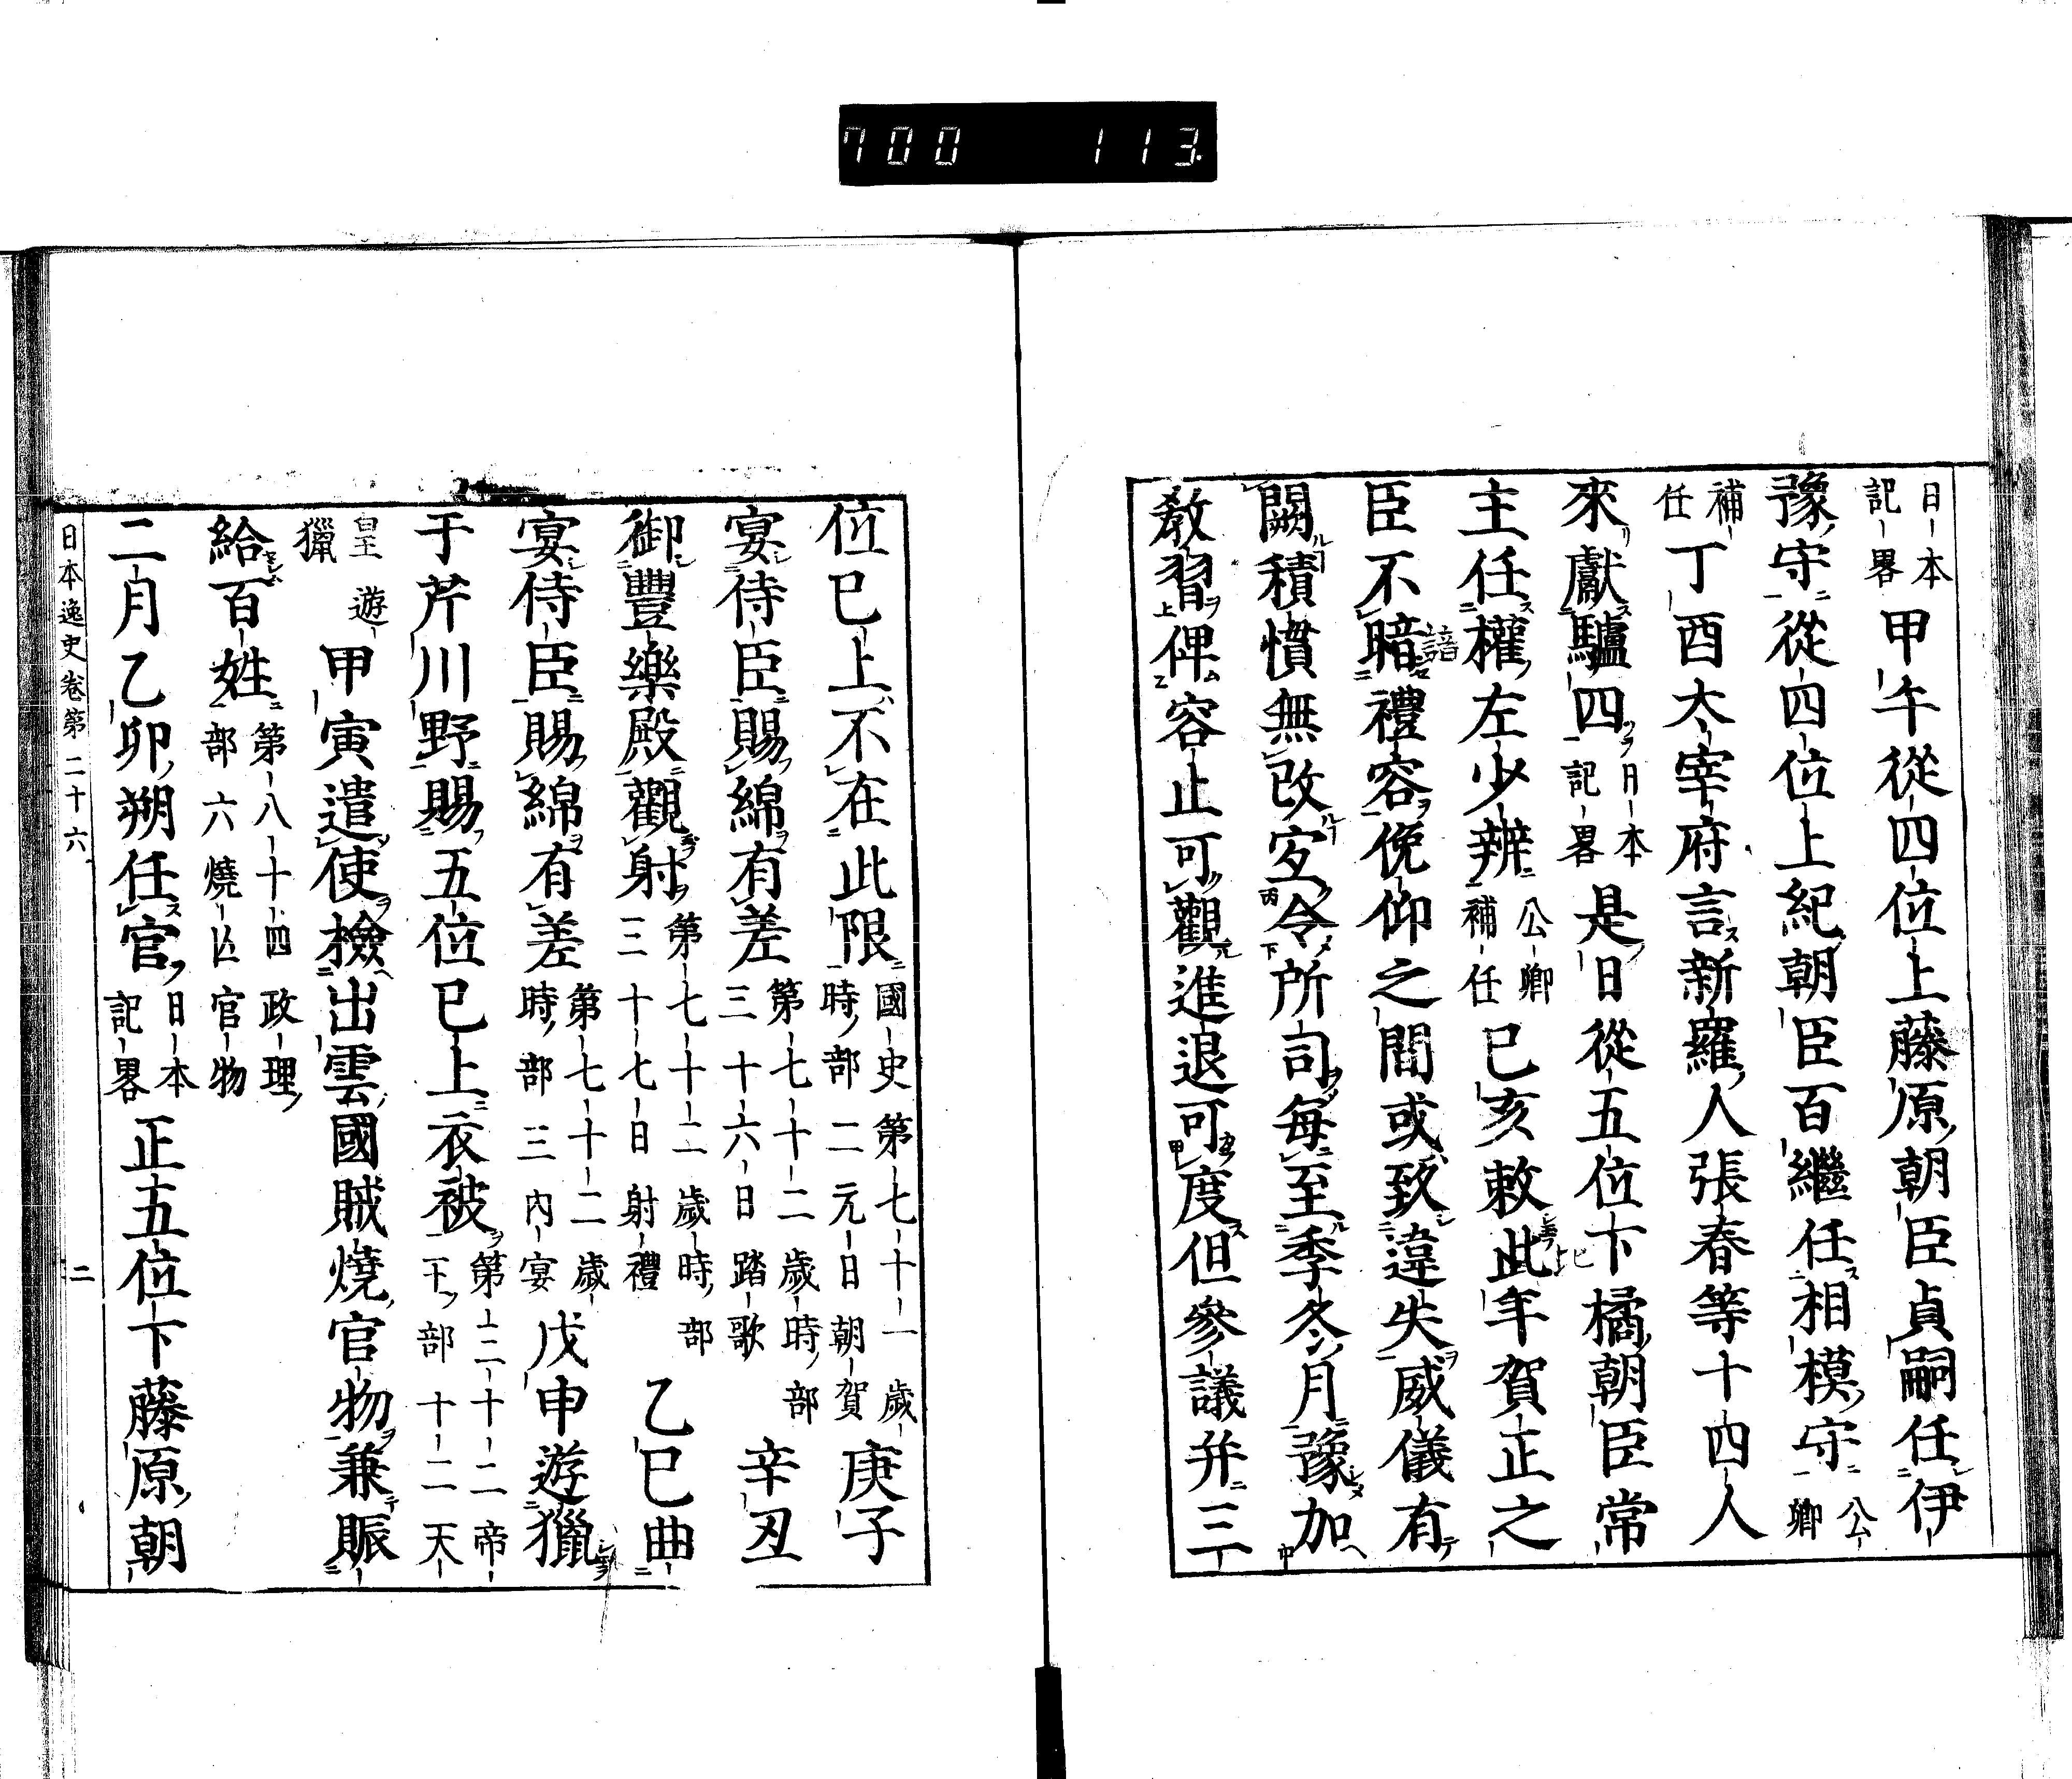 700 113
日本記畧甲午從四位上藤原朝臣貞嗣任伊
豫守從四位上紀朝臣百繼任相模守公卿
補任丁酉大宰府言新羅人張春等十四人
來獻驢四日本記畧是日從五位下橘朝臣常
主任權左少辨公卿補任已亥敕此年賀正之
臣不暗禮容俛仰之間或致違失威儀有
闕積慣無改宜令所司每至季冬月豫加
教習俾容止可觀進退可度但參議并三
位已上不在此限國史第七十一歲時部二元日朝賀庚子
宴侍臣賜綿有差第七十二歲時部三十六日踏歌辛丑
御豐樂殿觀射第七十二歲時部三十七日射禮乙巳曲
宴侍臣賜綿有差第七十二歲時部三內宴戊申遊獵
于芹川野賜五位已上衣被第三十二帝王部十二天
皇遊獵甲寅遣使檢出雲國賊燒官物兼賑
給百姓第八十四政理部六燒亡官物
二月乙卯朔任官日本記畧正五位下藤原朝
日本逸史卷第二十六 二